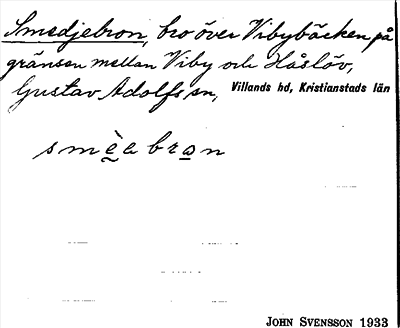 Smedjebron, bro över Vibybäcken på
gränsen mellan Viby och Håslöv,
Gustav Adolfs sn, Villands hd, Kristianstads län
smèabron
JOHN SVENSSON 1933